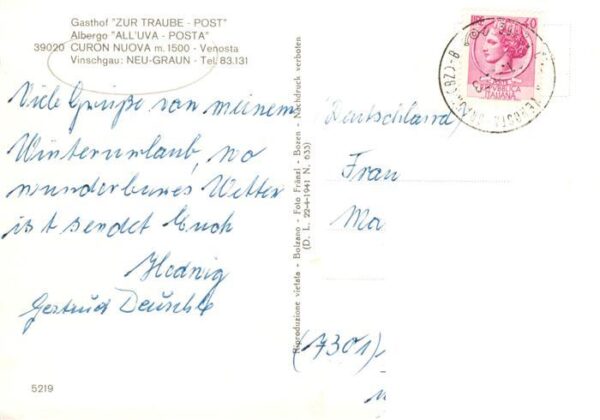 Gasthof "ZUR TRAUBE - POST"
Albergo "ALL'UVA - POSTA"
39020 CURON NUOVA m. 1500 - Venosta
Vinschgau: NEU-GRAUN - Tel. 83.131
Viele Grüße von meinem
Winterurlaub, wo
wunderbares Wetter
ist sendet Euch
Hedwig
Gertrud Deuschle
5219
Riproduzione vietata - Bolzano - Foto Fränzl - Bozen - Nachdruck verboten
(D. L. 22-4-1941 N. 633)
40
ITALIANA
(BZ)
(Deutschland)
Frau
Ma
(7301)